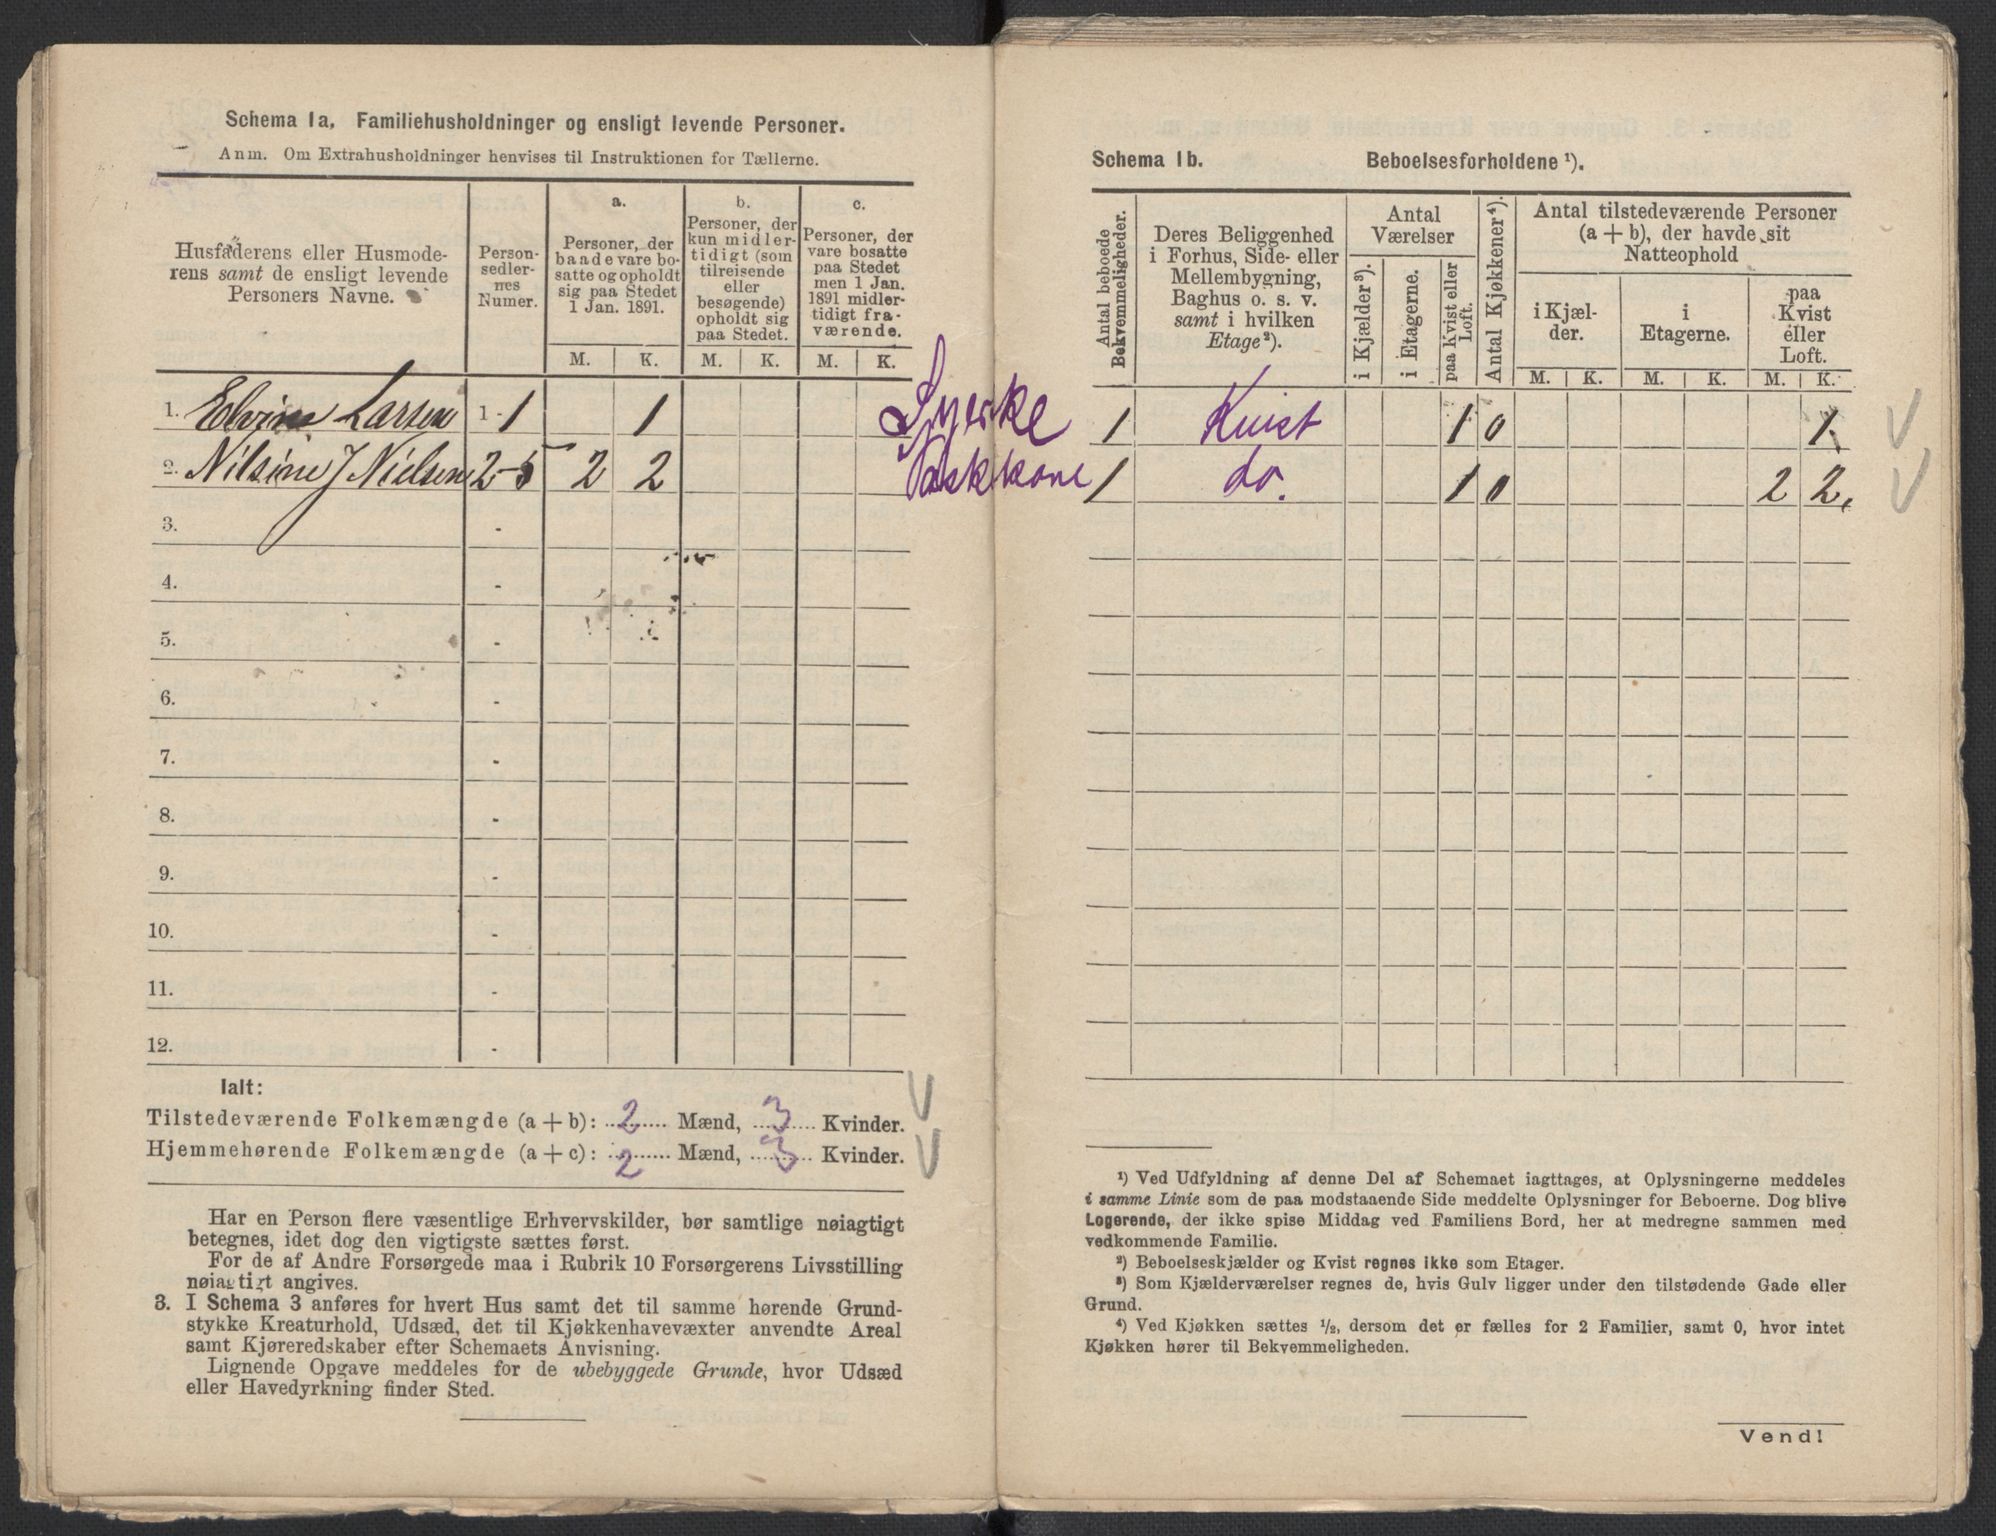 Schema 1a. Familiehusholdninger og ensligt levende Personer.
Anm. Om Extrahusholdninger henvises til Instruktionen for Tællerne.
Husfaderens eller Husmoderens samt de ensligt levende Personers Navne.
Personsedlernes Numer.
a.
Personer, der baade vare bosatte og opholdt sig paa Stedet 1 Jan. 1891.
b.
Personer, der kun midlertidigt (som tilreisende eller besøgende) opholdt sig paa Stedet.
c.
Personer, der vare bosatte paa Stedet men 1 Jan. 1891 midlertidigt fraværende.
M. K. M. K. M. K.
1. Elvine Larsen 1 - 1 1 Syerske
2. Nilsine J Nielsen 2 - 5 2 2 Vaskekone
3. -
4. -
5. -
6. -
7. -
8. -
9. -
10. -
11. -
12. -
Ialt:
Tilstedeværende Folkemængde (a + b): 2 Mænd, 3 Kvinder.
Hjemmehørende Folkemængde (a + c): 2 Mænd, 3 Kvinder.
Har en Person flere væsentlige Erhvervskilder, bør samtlige nøiagtigt
betegnes, idet dog den vigtigste sættes først.
For de af Andre Forsørgede maa i Rubrik 10 Forsørgerens Livsstilling
nøiagtigt angives.
3. I Schema 3 anføres for hvert Hus samt det til samme hørende Grund-
stykke Kreaturhold, Udsæd, det til Kjøkkenhavevæxter anvendte Areal
samt Kjøreredskaber efter Schemaets Anvisning.
Lignende Opgave meddeles for de ubebyggede Grunde, hvor Udsæd
eller Havedyrkning finder Sted.
Schema 1b. Beboelsesforholdene ¹).
Antal beboede Bekvemmeligheder.
Deres Beliggenhed i Forhus, Side- eller Mellembygning, Baghus o. s. v. samt i hvilken Etage²).
Antal Værelser
i Kjælder³).
i Etagerne.
paa Kvist eller Loft.
Antal Kjøkkener⁴).
Antal tilstedeværende Personer (a + b), der havde sit Natteophold
i Kjælder.
i Etagerne.
paa Kvist eller Loft.
M. K. M. K. M. K.
1 Kvist 1 0 1
1 do. 1 0 2 2
¹) Ved Udfyldning af denne Del af Schemaet iagttages, at Oplysningerne meddeles
i samme Linie som de paa modstaaende Side meddelte Oplysninger for Beboerne. Dog blive
Logerende, der ikke spise Middag ved Familiens Bord, her at medregne sammen med
vedkommende Familie.
²) Beboelseskjælder og Kvist regnes ikke som Etager.
³) Som Kjælderværelser regnes de, hvis Gulv ligger under den tilstødende Gade eller
Grund.
⁴) Ved Kjøkken sættes ½, dersom det er fælles for 2 Familier, samt 0, hvor intet
Kjøkken hører til Bekvemmeligheden.
Vend!